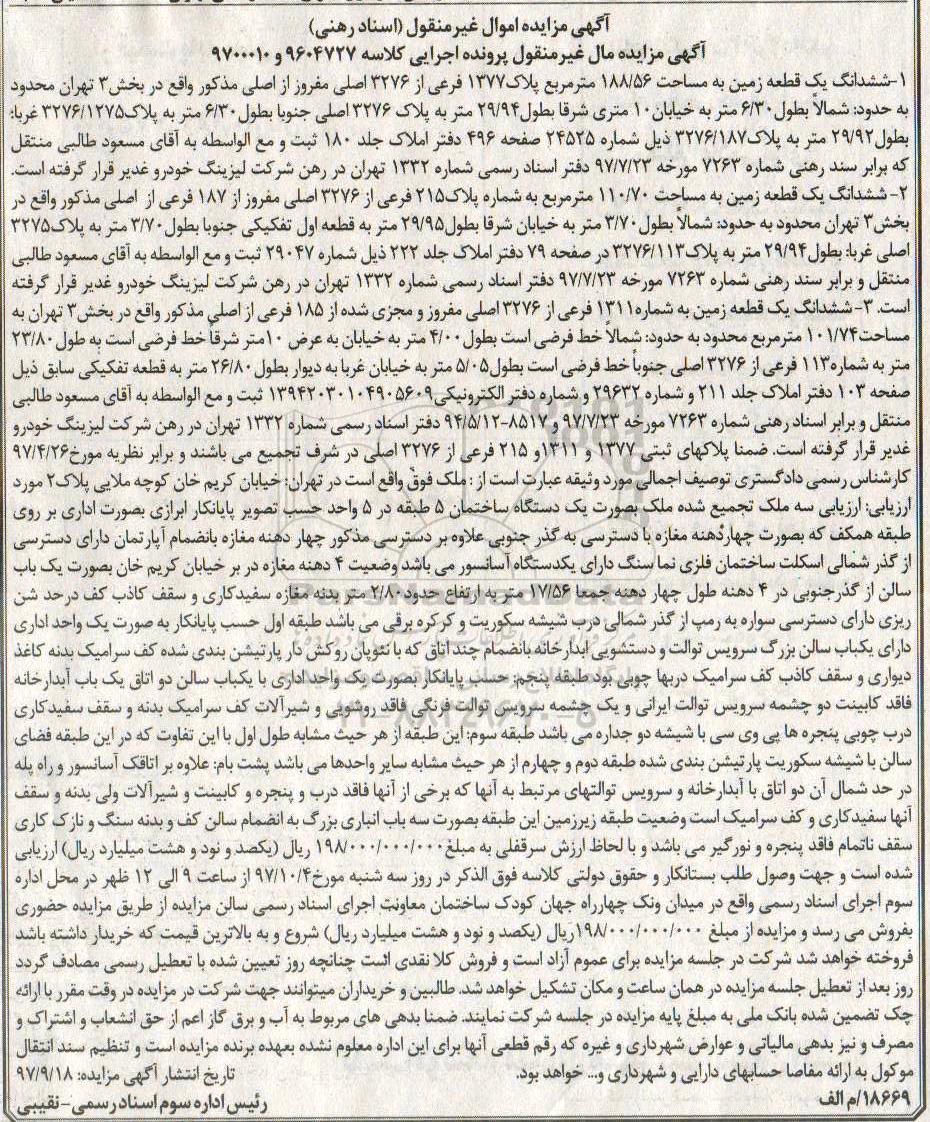 آگهی مزایده اموال غیرمنقول (اسناد رهنی)
آگهی مزایده مال غیرمنقول پرونده اجرایی کلاسه ۹۶۰۴۷۲۷ و ۹۷۰۰۰۱۰
۱-ششدانگ یک قطعه زمین به مساحت ۱۸۸/۵۶ مترمربع پلاک۱۳۷۷ فرعی از ۳۲۷۶ اصلی مفروز از اصلی مذکور واقع در بخش۳ تهران محدود
به حدود: شمالاً بطول۶/۳۰ متر به خیابان۱۰ متری شرقا بطول۲۹/۹۴ متر به پلاک ۳۲۷۶ اصلی جنوبا بطول۶/۳۰ متر به پلاک۳۲۷۶/۱۲۷۵ غربا:
بطول۲۹/۹۲ متر به پلاک۳۲۷۶/۱۸۷ ذیل شماره ۲۴۵۲۵ صفحه ۴۹۶ دفتر املاک جلد ۱۸۰ ثبت و مع الواسطه به آقای مسعود طالبی منتقل
که برابر سند رهنی شماره ۷۲۶۳ مورخه ۹۷/۷/۲۳ دفتر اسناد رسمی شماره ۱۳۳۲ تهران در رهن شرکت لیزینگ خودرو غدیر قرار گرفته است.
۲- ششدانگ یک قطعه زمین به مساحت ۱۱۰/۷۰ مترمربع به شماره پلاک۲۱۵ فرعی از ۳۲۷۶ اصلی مفروز از ۱۸۷ فرعی از اصلی مذکور واقع در
بخش۳ تهران محدود به حدود: شمالاً بطول۳/۷۰ متر به خیابان شرقا بطول۲۹/۹۵ متر به قطعه اول تفکیکی جنوبا بطول۳/۷۰ متر به پلاک۳۲۷۵
اصلی غربا: بطول۲۹/۹۴ متر به پلاک۳۲۷۶/۱۱۳ در صفحه ۷۹ دفتر املاک جلد ۲۲۲ ذیل شماره ۲۹۰۴۷ ثبت و مع الواسطه به آقای مسعود طالبی
منتقل و برابر سند رهنی شماره ۷۲۶۳ مورخه ۹۷/۷/۲۳ دفتر اسناد رسمی شماره ۱۳۳۲ تهران در رهن شرکت لیزینگ خودرو غدیر قرار گرفته
است. ۳- ششدانگ یک قطعه زمین به شماره۱۳۱۱ فرعی از ۳۲۷۶ اصلی مفروز و مجزی شده از ۱۸۵ فرعی از اصلی مذکور واقع در بخش۳ تهران به
مساحت۱۰۱/۷۴ مترمربع محدود به حدود: شمالاً خط فرضی است بطول۴/۰۰ متر به خیابان به عرض ۱۰متر شرقاً خط فرضی است به طول۲۳/۸۰
متر به شماره۱۱۳ فرعی از ۳۲۷۶ اصلی جنوباً خط فرضی است بطول۵/۰۵ متر به خیابان غربا به دیوار بطول۲۶/۸۰ متر به قطعه تفکیکی سابق ذیل
صفحه ۱۰۳ دفتر املاک جلد ۲۱۱ و شماره ۲۹۶۳۲ و شماره دفتر الکترونیکی۱۳۹۴۲۰۳۰۱۰۴۹۰۵۶۰۹ ثبت و مع الواسطه به آقای مسعود طالبی
منتقل و برابر اسناد رهنی شماره ۷۲۶۳ مورخه ۹۷/۷/۲۳ و ۸۵۱۷-۹۴/۵/۱۲ دفتر اسناد رسمی شماره ۱۳۳۲ تهران در رهن شرکت لیزینگ خودرو
غدیر قرار گرفته است. ضمنا پلاکهای ثبتی ۱۳۷۷ و ۱۳۱۱و ۲۱۵ فرعی از ۳۲۷۶ اصلی در شرف تجمیع می باشند و برابر نظریه مورخ۹۷/۴/۲۶
کارشناس رسمی دادگستری توصیف اجمالی مورد وثیقه عبارت است از : ملک فوق واقع است در تهران: خیابان کریم خان کوچه ملایی پلاک۲ مورد
ارزیابی: ارزیابی سه ملک تجمیع شده ملک بصورت یک دستگاه ساختمان ۵ طبقه در ۵ واحد حسب تصویر پایانکار ابرازی بصورت اداری بر روی
طبقه همکف که بصورت چهاردهنه مغازه با دسترسی به گذر جنوبی علاوه بر دسترسی مذکور چهار دهنه مغازه بانضمام آپارتمان دارای دسترسی
از گذر شمالی اسکلت ساختمان فلزی نما سنگ دارای یکدستگاه آسانسور می باشد وضعیت ۴ دهنه مغازه در بر خیابان کریم خان بصورت یک باب
سالن از گذرجنوبی در ۴ دهنه طول چهار دهنه جمعا ۱۷/۵۶ متر به ارتفاع حدود۲/۸۰ متر بدنه مغازه سفیدکاری و سقف کاذب کف درحد شن
ریزی دارای دسترسی سواره به رمپ از گذر شمالی درب شیشه سکوریت و کرکره برقی می باشد طبقه اول حسب پایانکار به صورت یک واحد اداری
دارای یکباب سالن بزرگ سرویس توالت و دستشویی آبدارخانه بانضمام چند اتاق که با نئوپان روکش دار پارتیشن بندی شده کف سرامیک بدنه کاغذ
دیواری و سقف کاذب کف سرامیک دربها چوبی بود طبقه پنجم: حسب پایانکار بصورت یک واحد اداری با یکباب سالن دو اتاق یک باب آبدارخانه
فاقد کابینت دو چشمه سرویس توالت ایرانی و یک چشمه سرویس توالت فرنگی فاقد روشویی و شیرآلات کف سرامیک بدنه و سقف سفیدکاری
درب چوبی پنجره ها پی وی سی با شیشه دو جداره می باشد طبقه سوم: این طبقه از هر حیث مشابه طول اول با این تفاوت که در این طبقه فضای
سالن با شیشه سکوریت پارتیشن بندی شده طبقه دوم و چهارم از هر حیث مشابه سایر واحدها می باشد پشت بام: علاوه بر اتاقک آسانسور و راه پله
در حد شمال آن دو اتاق با آبدارخانه و سرویس توالتهای مرتبط به آنها که برخی از آنها فاقد درب و پنجره و کابینت و شیرآلات ولی بدنه و سقف
آنها سفیدکاری و کف سرامیک است وضعیت طبقه زیرزمین این طبقه بصورت سه باب انباری بزرگ به انضمام سالن کف و بدنه سنگ و نازک کاری
سقف ناتمام فاقد پنجره و نورگیر می باشد و با لحاظ ارزش سرقفلی به مبلغ۱۹۸/۰۰۰/۰۰۰/۰۰۰ ریال (یکصد و نود و هشت میلیارد ریال) ارزیابی
شده است و جهت وصول طلب بستانکار و حقوق دولتی کلاسه فوق الذکر در روز سه شنبه مورخ۹۷/۱۰/۴ از ساعت ۹ الی ۱۲ ظهر در محل اداره
سوم اجرای اسناد رسمی واقع در میدان ونک چهارراه جهان کودک ساختمان معاونت اجرای اسناد رسمی سالن مزایده از طریق مزایده حضوری
بفروش می رسد و مزایده از مبلغ ۱۹۸/۰۰۰/۰۰۰/۰۰۰ریال (یکصد و نود و هشت میلیارد ریال) شروع و به بالاترین قیمت که خریدار داشته باشد
فروخته خواهد شد شرکت در جلسه مزایده برای عموم آزاد است و فروش کلا نقدی است چنانچه روز تعیین شده با تعطیل رسمی مصادف گردد
روز بعد از تعطیل جلسه مزایده در همان ساعت و مکان تشکیل خواهد شد. طالبین و خریداران میتوانند جهت شرکت در مزایده در وقت مقرر با ارائه
چک تضمین شده بانک ملی به مبلغ پایه مزایده در جلسه شرکت نمایند. ضمنا بدهی های مربوط به آب و برق گاز اعم از حق انشعاب و اشتراک و
مصرف و نیز بدهی مالیاتی و عوارض شهرداری و غیره که رقم قطعی آنها برای این اداره معلوم نشده بعهده برنده مزایده است و تنظیم سند انتقال
موکول به ارائه مفاصا حسابهای دارایی و شهرداری و... خواهد بود. تاریخ انتشار آگهی مزایده: ۹۷/۹/۱۸
۱۸۶۶۹/م الف رئیس اداره سوم اسناد رسمی-نقیبی
ParsNamadData
۰۲۱-۸۸۳۴۹۶۷۰-۵